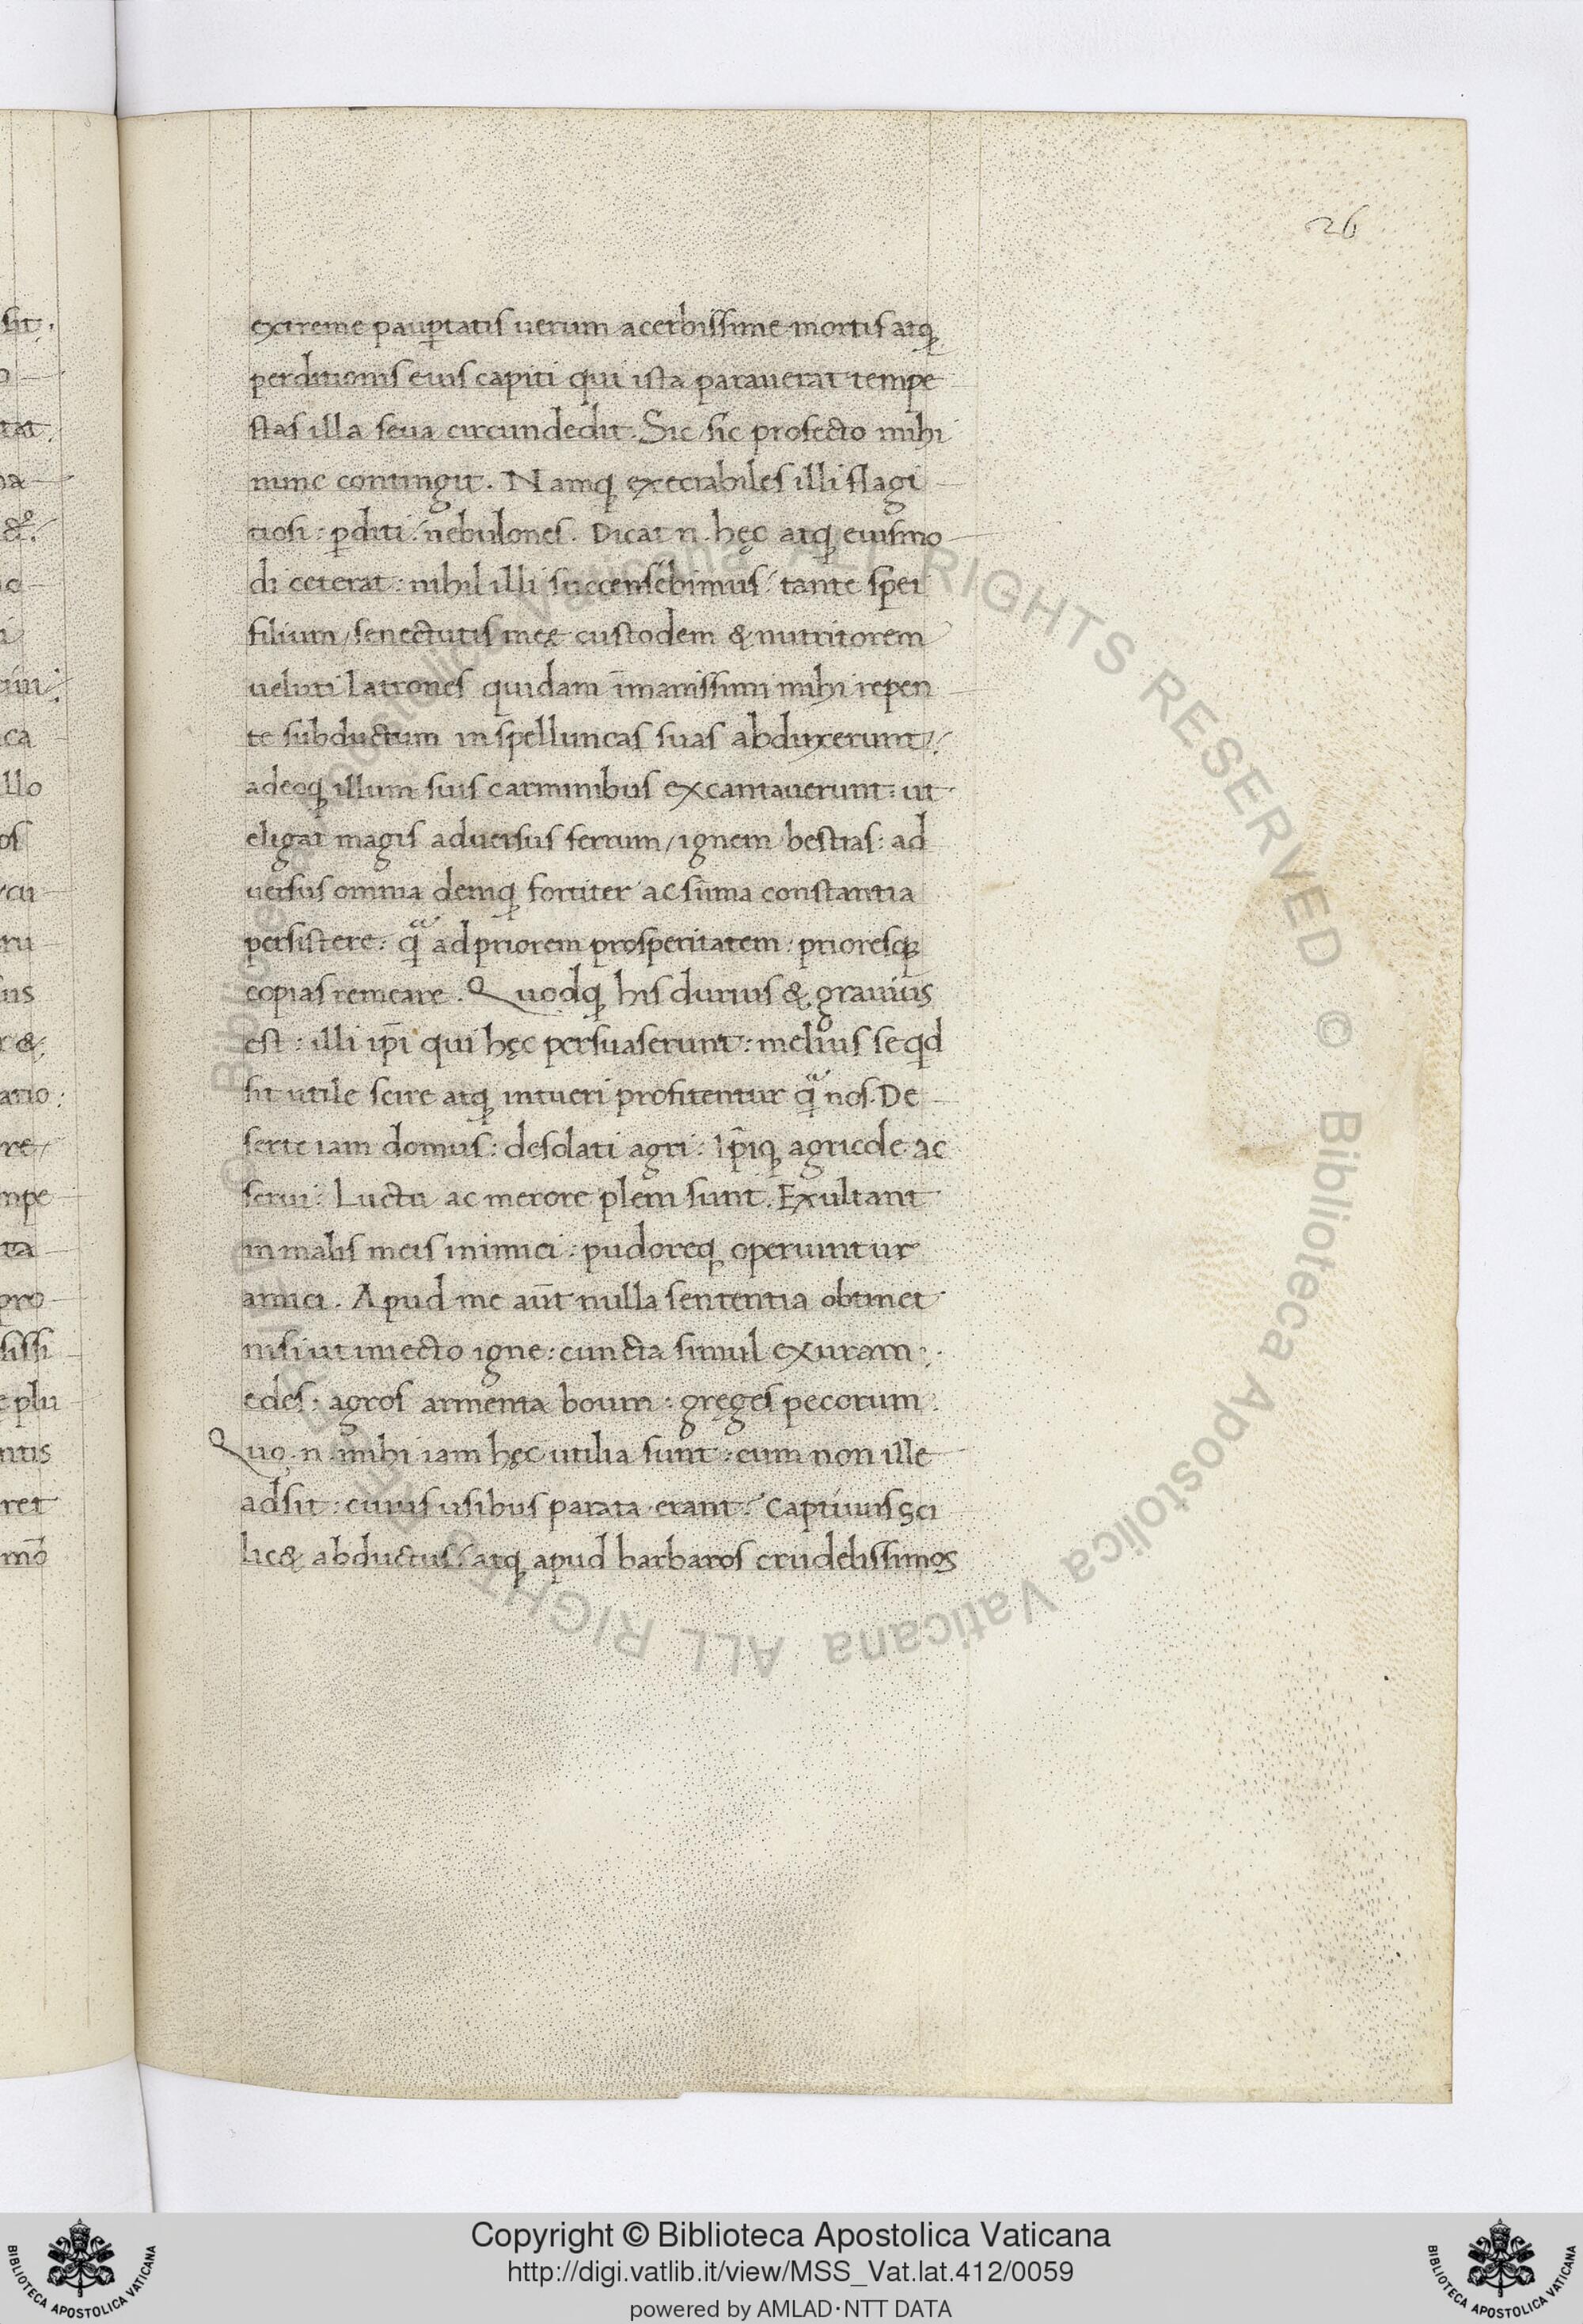 26
extreme paup̱tatis uerum acerbissime mortis atqꝫ
perditionis eius capiti qui ista parauerat tempe
stas illa seua circundedit. Sic sic profecto mihi
nunc contingit. Namqꝫ execrabiles illi flagi
tiosi: ꝑditi: nebulones. Dicat n. hęc atqꝫ eiusmo
di ceterat: nihil illi succensebimus: tante spei
filium / senectutis meę custodem & nutritorem
ueluti latrones quidam īmanissimi mihi repen
te subductum in spelluncas suas abduxerunt:
adeoqꝫ illum suis carminibus excantauerunt: ut
eligat magis aduersus ferrum / ignem bestias: ad
uersus omnia demqꝫ fortiter ac sūma constantia
persistere: qᵃ̃ ad priorem prosperitatem: prioresqꝫ
copias remeare. Quodqꝫ his durius & grauius
est: illi ip̄i qui hęc persuaserunt: melius se qd
sit utile scire atqꝫ intueri profitentur qᵃ̃ nos. De
serte iam domus: desolati agri: Ip̄iqꝫ agricole ac
serui: Luctu ac merore pleni sunt. Exultant
in malis meis inimici: pudoreqꝫ operiuntur
amici. Apud me aūt nulla sententia obtinet
nisi ut iniecto igne: cuncta simul exuram:
edes: agros armenta boum: greges pecorum.
Quo. n. mihi iam hęc utilia sunt: cum non ille
adsit: cuius usibus parata erant: Captiuus sci
lic& abductus: atqꝫ apud barbaros crudelissimos
Copyright © Biblioteca Apostolica Vaticana
http://digi.vatlib.it/view/MSS_Vat.lat.412/0059
powered by AMLAD·NTT DATA